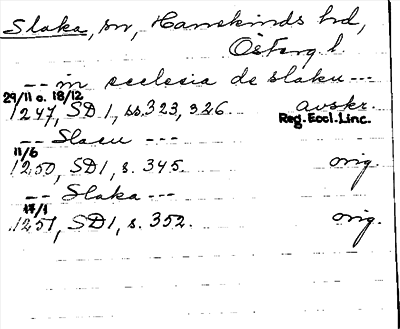 Slaka, sn, Hanekinds hd,
Österg l.
-- in ecclesia de slaku ---
29/11 o. 18/12
1247, SD 1, ss. 323, 326. avskr.
Reg. Eccl. Linc.
-- Slacu ---
11/6
1250, SD 1, s. 345. orig.
-- Slaka ---
17/1
1251, SD 1, s. 352. orig.